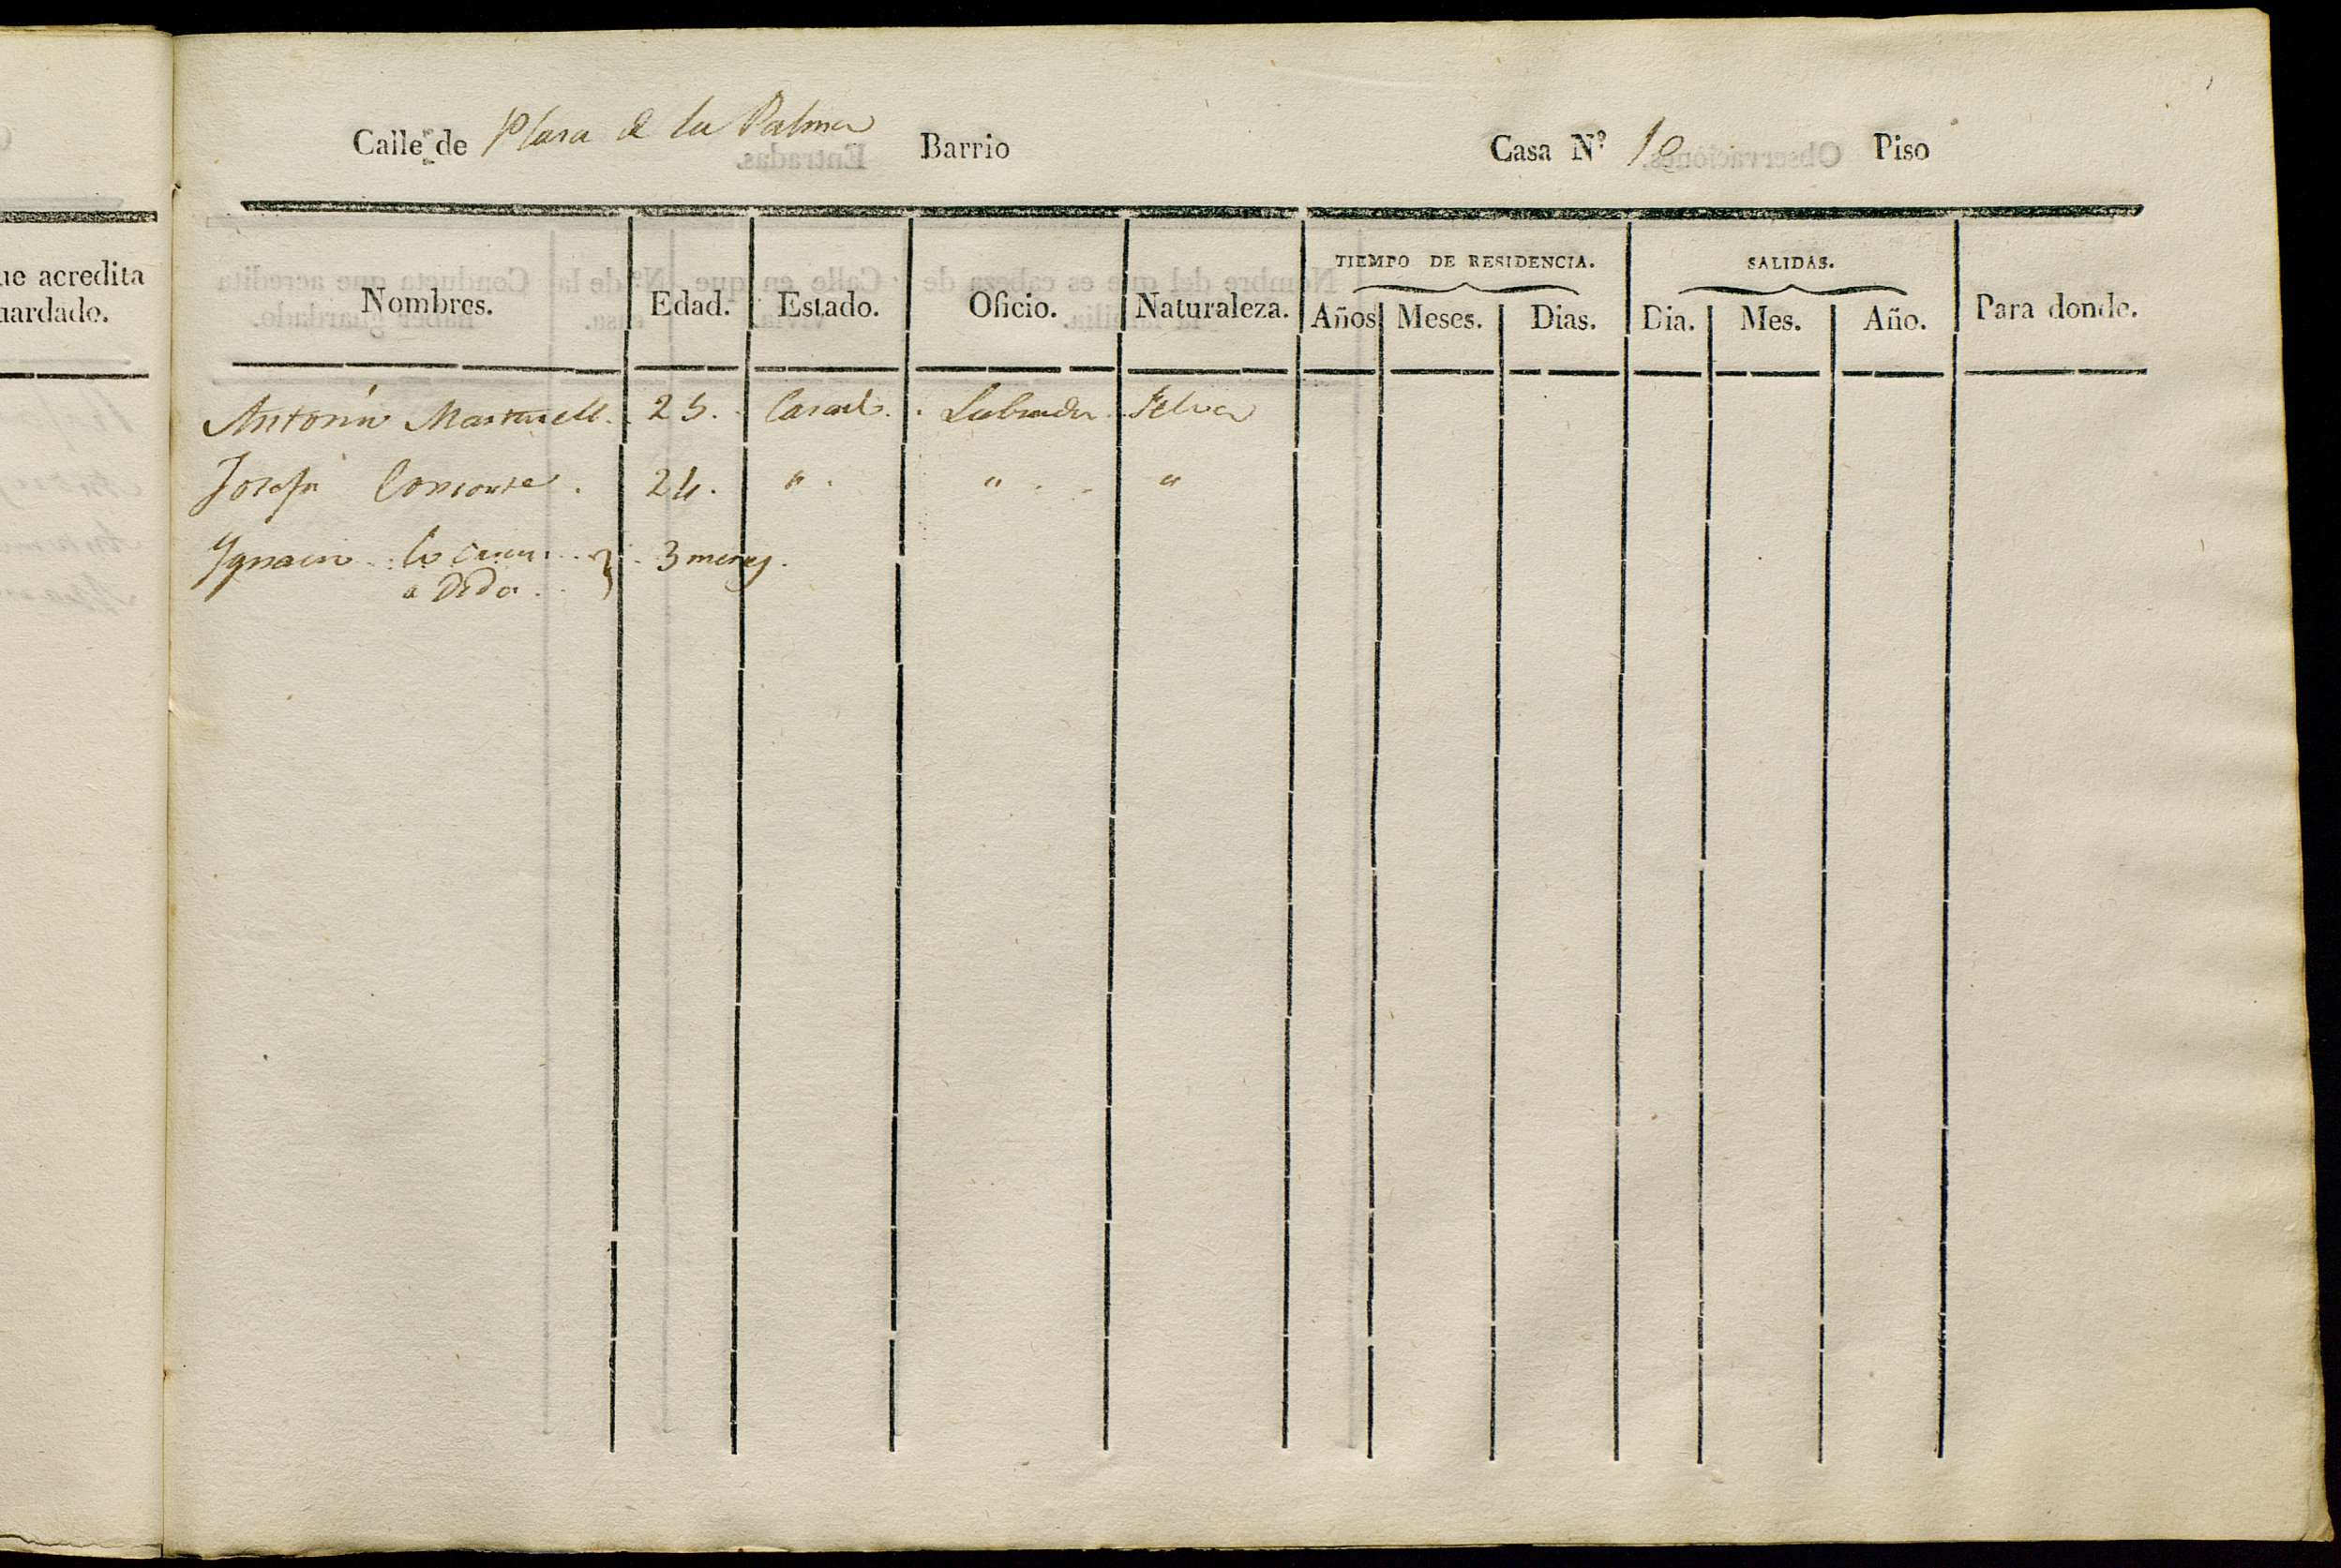 ue acredita
uardado.
Calle de Plasa de la Palma Barrio Casa N.º 10 Piso
TIEMPO DE RESIDENCIA. SALIDAS.
Nombres. Edad. Estado. Oficio. Naturaleza. Años Meses. Dias. Dia. Mes. Año. Para donde.
Antonio Martorell. 25. Casad. Labrador Selva
Josefa Consorte. 24. " " "
Ygnacio 3 meses.
a Dida.